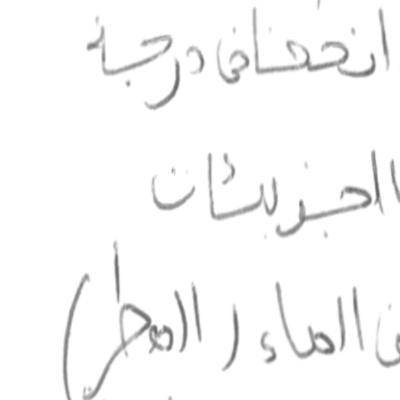 انخفاض درجة
الجزيئات
الماء ( المطر )